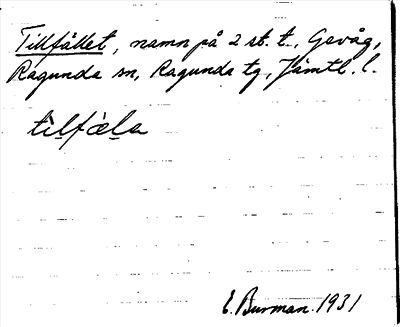 Tillfället, namn på 2 st. t., Gevåg,
Ragunda sn, Ragunda tg, Jämtl. l.
tilfæla
E. Burman 1931